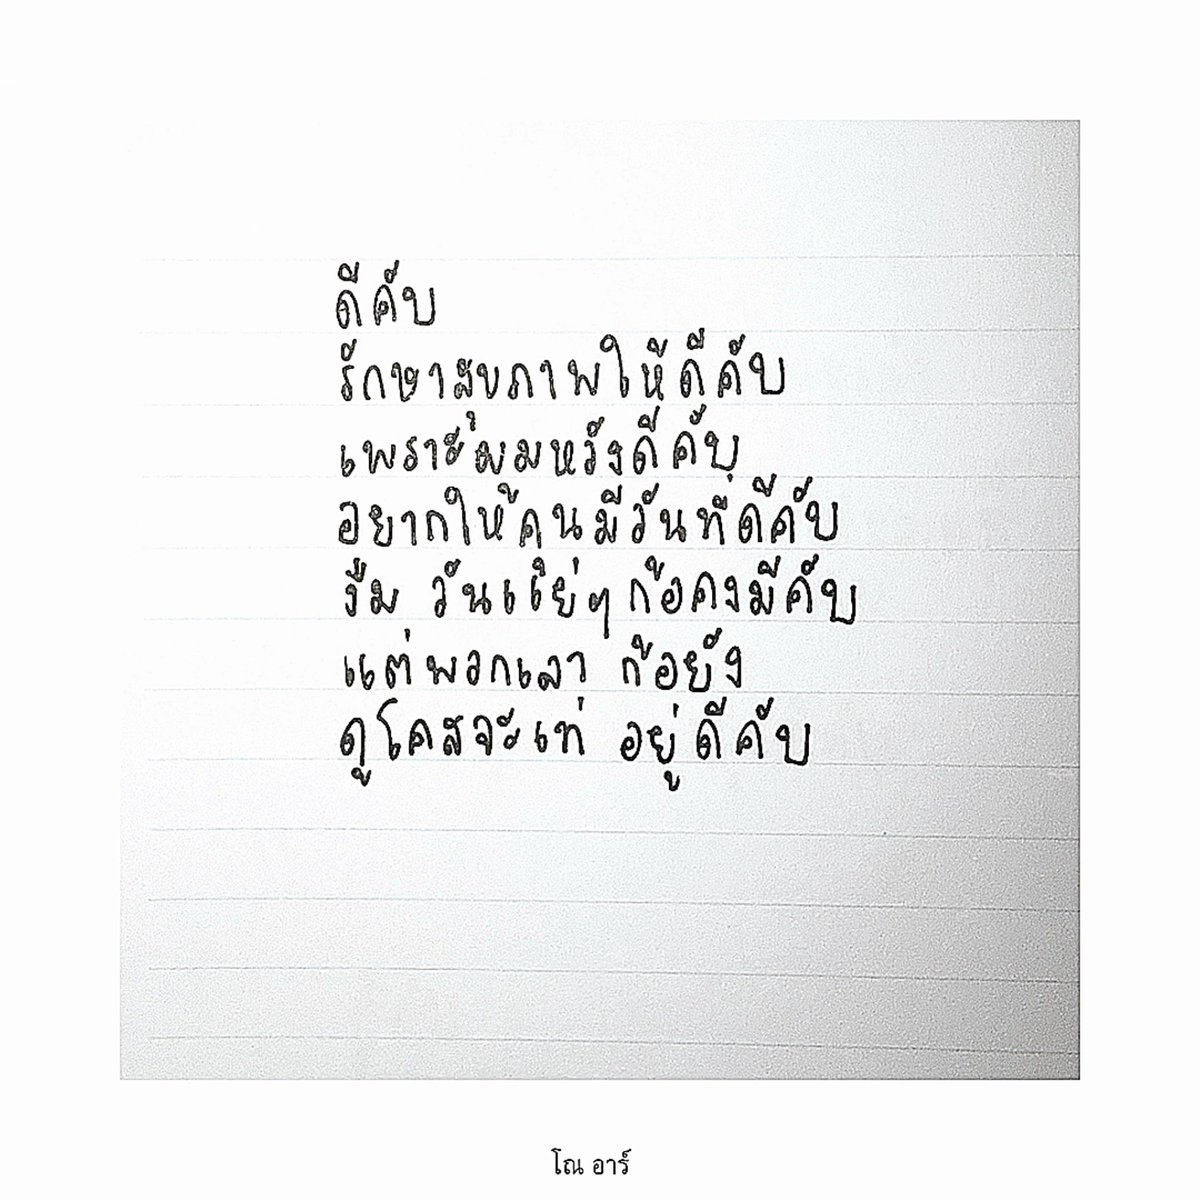 ดีคั๊บ
รักษาสุขภาพให้ดีคั๊บ
เพราะผมหวังดีคั๊บ
อยากให้คุนมีวันที่ดีคั๊บ
งืม วันแย่ๆก้อคงมีคั๊บ
แต่พวกเลา ก้อยัง
ดูโคสจะเท่ อยู่ดีคั๊บ
โณ อาร์